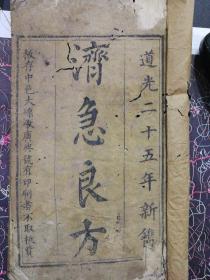 道光二十五年新镌
濟急良方
板存中邑大
有印刷者不取板資